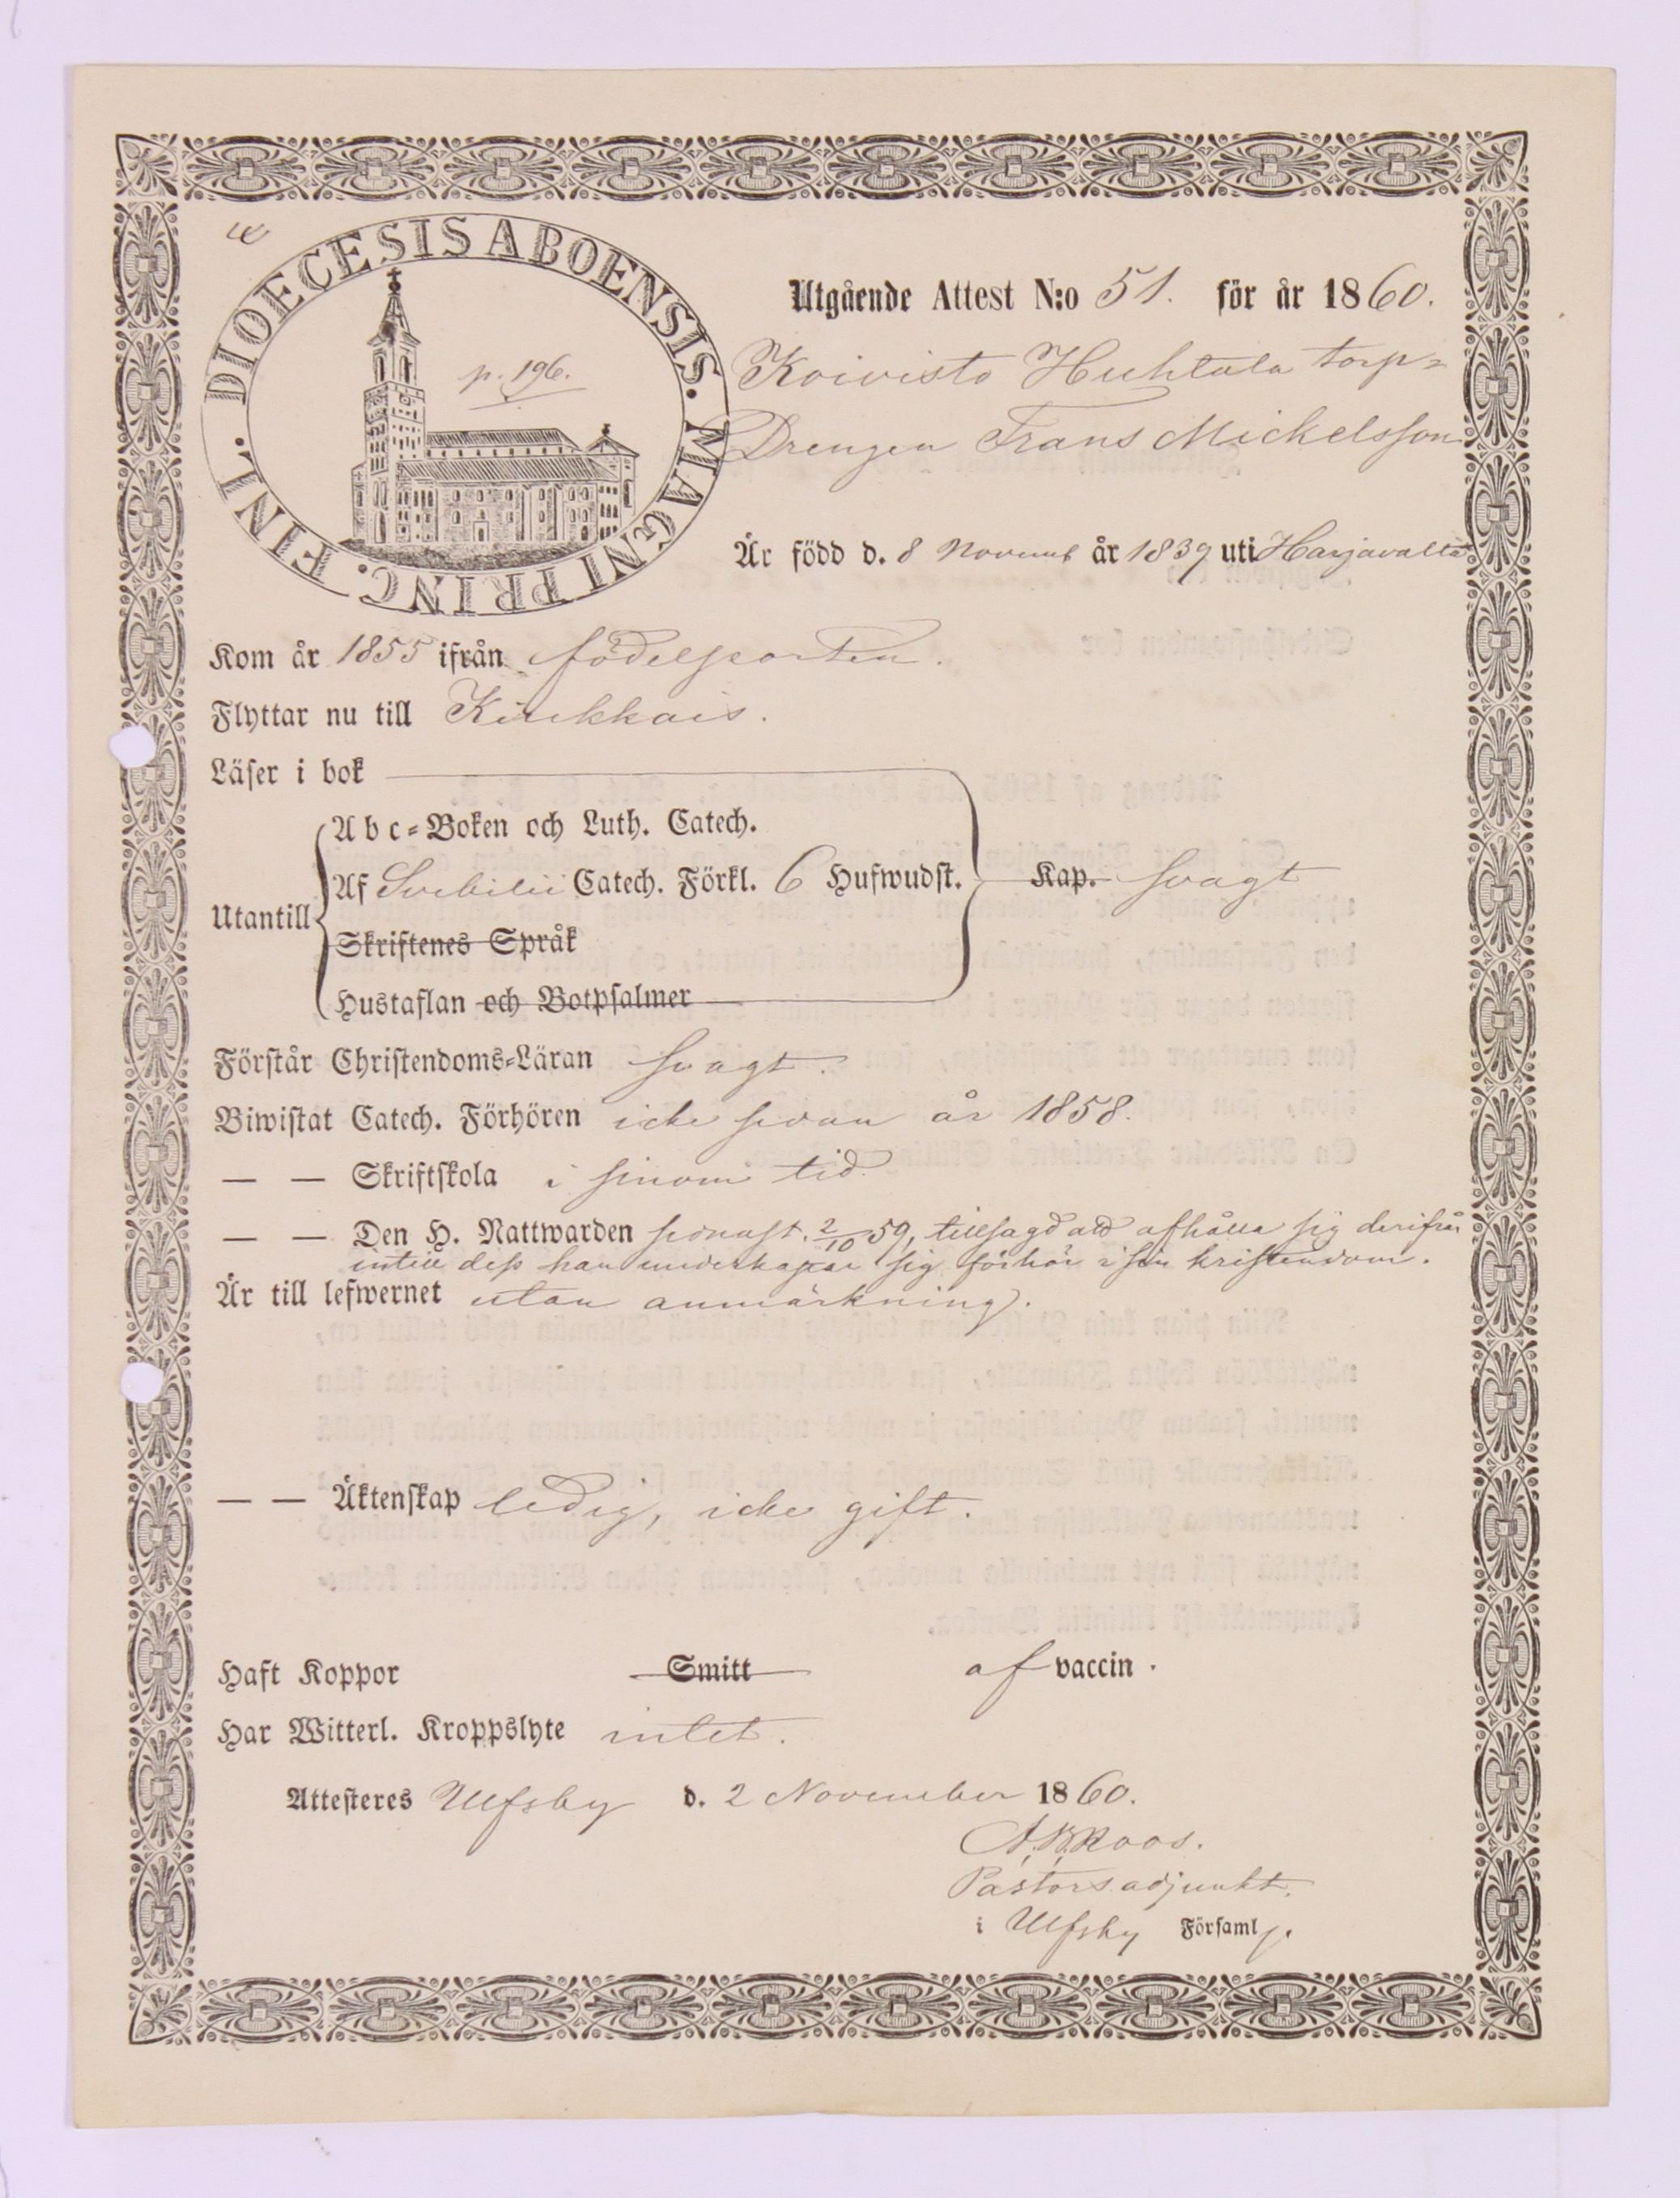 DIOECESIS ABOENSIS. MAGNI PRINC. FINL.
p. 196.
Utgående Attest N:o 51. för år 1860.
Koivisto Huhtala torp-
Drengen Frans Mickelsson
Är född d. 8 Novemb år 1839 uti Harjavalta
Kom år 1855 ifrån födelseorten.
Flyttar nu till Kiukkais.
Läser i bok
Abc-Boken och Luth. Catech.
Utantill Af Svebilii Catech. Förkl. 6 Hufwudst. Kap. svagt
Skriftenes Språk
Hustaflan och Botpsalmer
Förstår Christendoms-Läran svagt.
Biwistat Catech. Förhören icke sedan år 1858.
— — Skriftskola i sinom tid.
— — Den H. Nattwarden senast. 2/10 59, tillsagd att afhålla sig derifrån
intill dess han underkastar sig förhör i sin kristendom.
Är till lefwernet utan anmärkning.
— — Äktenskap ledig, icke gift.
Haft Koppor Smitt af vaccin.
Har Witterl. Kroppslyte intet.
Attesteres Ulfsby d. 2 November 1860.
A. K. Roos.
Pastorsadjunkt.
i Ulfsby Församlg.